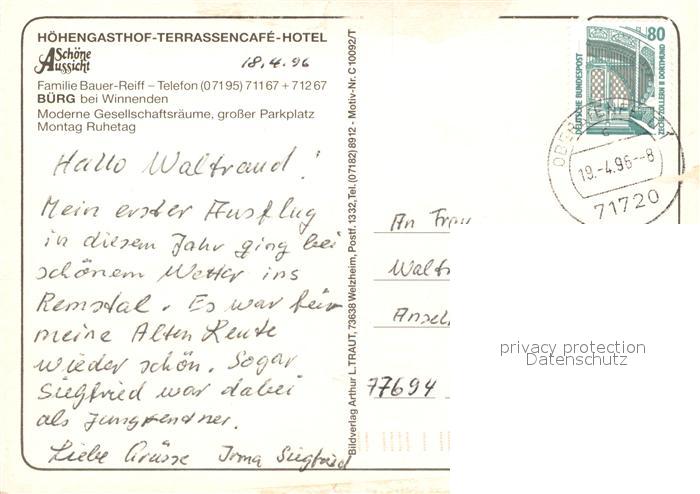 HÖHENGASTHOF-TERRASSENCAFÉ-HOTEL
Schöne Aussicht
18.4.96
Familie Bauer-Reiff – Telefon (07195) 71167 + 71267
BÜRG bei Winnenden
Moderne Gesellschaftsräume, großer Parkplatz
Montag Ruhetag
Hallo Waltraud!
Mein erster Ausflug
in diesem Jahr ging bei
schönem Wetter ins
Remstal. Es war für
meine Alten Leute
wieder schön. Sogar
Siegfried war dabei
als Jungrentner.
Liebe Grüsse Irma Siegfried
Bildverlag Arthur L. TRAUT, 73638 Welzheim, Postf. 1332, Tel. (07182) 8912 - Motiv-Nr. C 10092/T
DEUTSCHE BUNDESPOST
80
ZECHE ZOLLERN II DORTMUND
OBERSTENFELD
c
19.-4.96--8
71720
An Frau
Waltr
Ansel
77694
privacy protection
Datenschutz